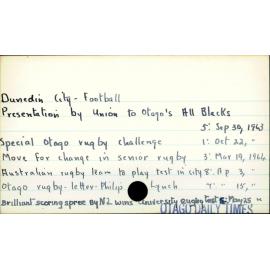 Dunedin City - Football
Presentation by Union to Otago's All Blacks
5. Sep 30, 1963
Special Otago rugby challenge 1. Oct 22, "
Move for change in senior rugby 3. Mar 19, 1964
Australian rugby team to play test in city 8. Ap 3, "
Otago rugby - letter - Philip Lynch " 15, "
Brilliant scoring spree by NZ wins university rugby test May 25 "
OTAGO DAILY TIMES